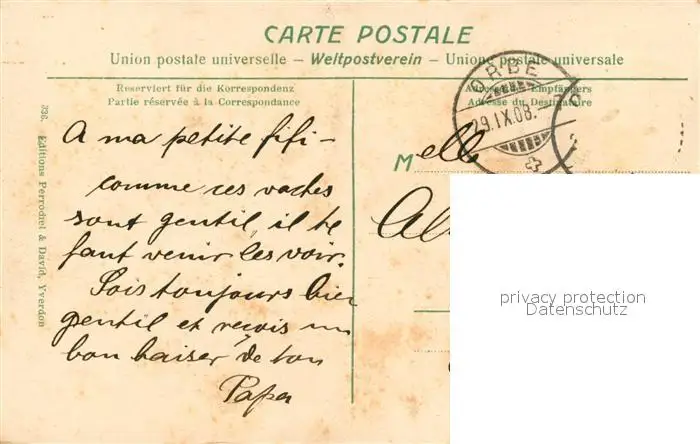 CARTE POSTALE
Union postale universelle – Weltpostverein – Unione postale universale
Reserviert für die Korrespondenz
Partie réservée à la Correspondance
Adresse des Empfängers
Adresse du Destinataire
ORBE
29.IX.08.
336. Editions Perrochet & David, Yverdon
A ma petite fifi -
comme ces vaches
sont gentil, il te
faut venir les voir.
Sois toujours bien
gentil et reçois un
bon baiser de ton
Papa
Melle
privacy protection
Datenschutz